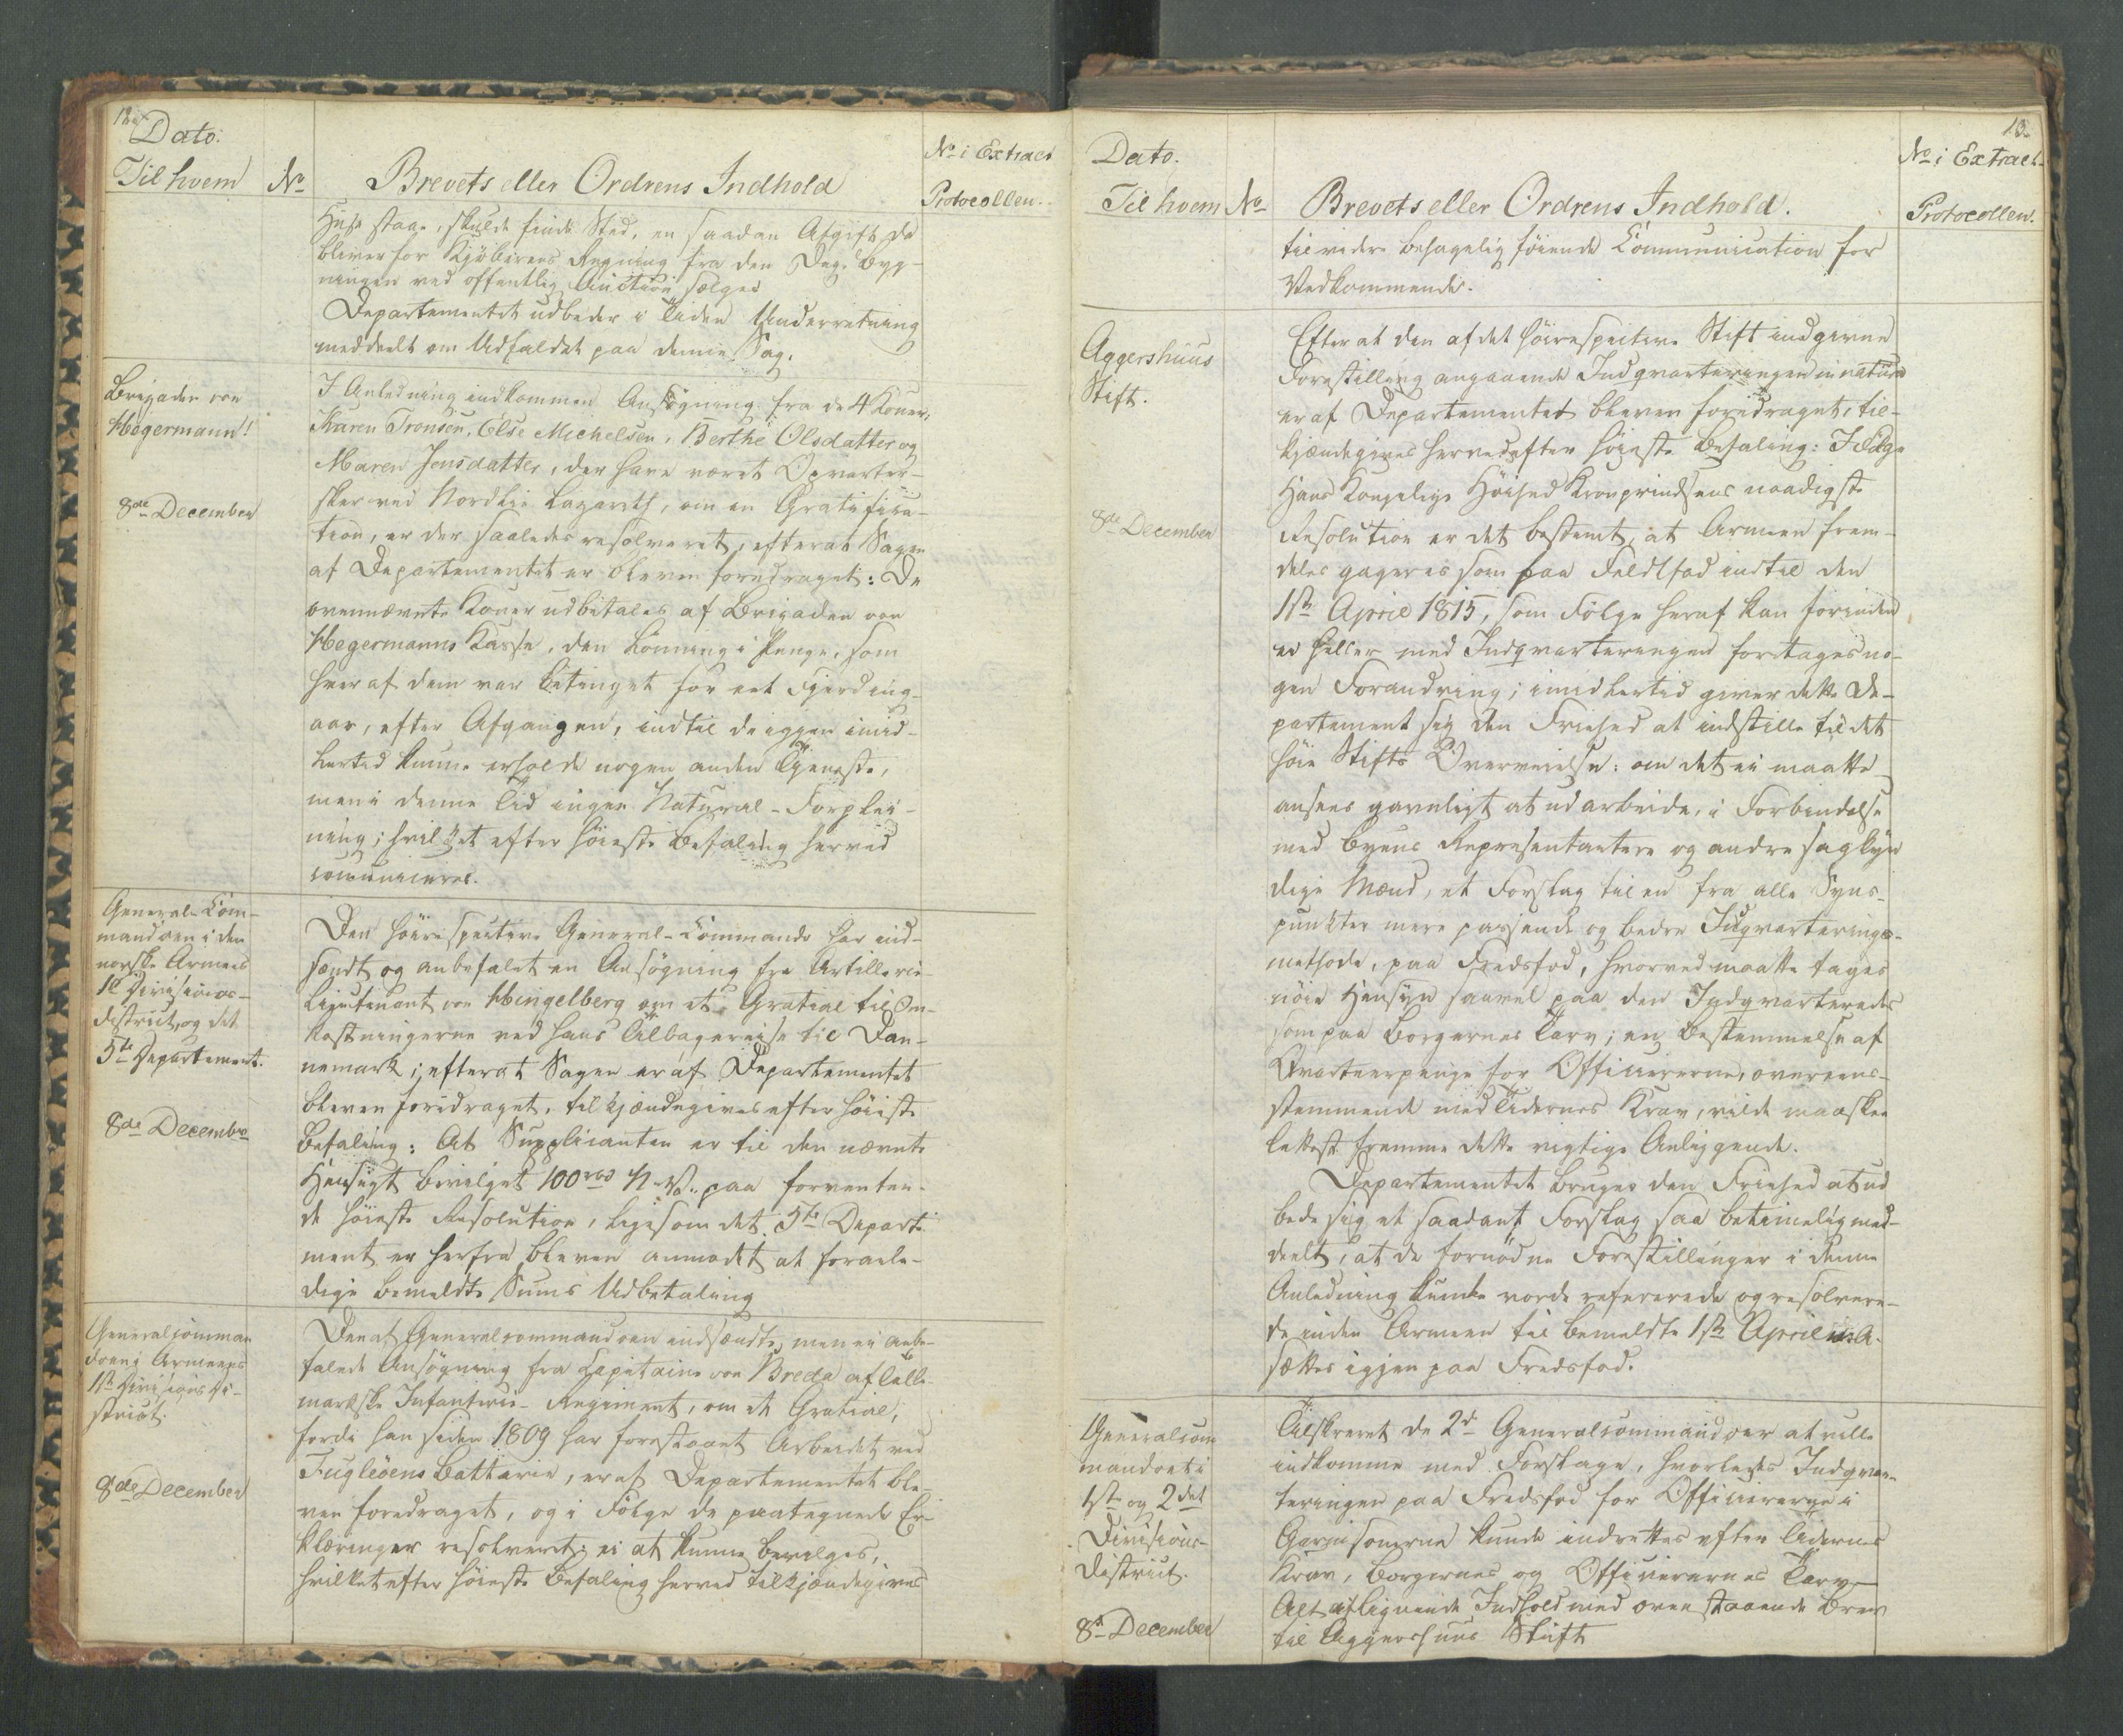 12.
Dato.
Til hvem
No
Brevets eller Ordrens Indhold
No i Extract
Protocollen.
staae, skulde finde Sted, en saadan Afgift da
bliver for Kjöberens Regning fra den Dag Byg-
ningen ved offentlig Auction sælges
Departementet udbeder i Tiden Underretning
meddeelt om Udfaldet paa denne Sag.
Brigaden von
Hegermann!
8de December
I Anledning indkommen Ansögning fra de 4 Koner,
Karen Tronsen, Else Michelsen, Berthe Olsdatter og
Maren Jensdatter, der have været Opvarter-
sker ved Nordlie Lazareth, om en Gratifica-
tion, er der saaledes resolveret, efterat Sagen
af Departementet er bleven foredraget: De
ovennævnte Koner udbetales af Brigaden von
Hegermanns Kasse, den Lönning i Penge, som
hver af dem var betinget for eet Fjerding-
aar, efter Afgangen, indtil de igjen imid-
lertid kunne erholde nogen anden Tjeneste,
men i denne Tid ingen Natural-Forplei-
ning; hvilket efter höieste Befaling herved
communiceres.
General-Com-
mandoen i den
norske Armees
1ste Divisions-
district, og det
5te Departement.
8de Decembr
Den höirespective General-Commando har ind-
sendt og anbefalet en Ansögning fra Artillerie-
Lieutenant von Hingelberg om et Gratial til Om-
kostningerne ved hans Tilbagereise til Dan-
nemark; efterat Sagen er af Departementet
bleven foredraget, tilkjendegives efter höieste
Befaling: At Supplicanten er til den nævnte
Hensigt bevilget 100 rbd N.V. paa forventen-
de höieste Resolution, ligesom det 5te Departe-
ment er herfra bleven anmodet at foranle-
dige bemeldte Sums Udbetaling
Generalcomman
doen i Armeens
1ste Divisions Di-
strict.
8de December
Den af Generalcommandoen indsendte, men ei anbe-
falede Ansögning fra Capitaine von Breda af Telle-
markske Infanterie-Regiment, om et Gratial,
fordi han siden 1809 har forestaaet Arbeidet ved
Fugleöens Batterie, er af Departementet ble-
ven foredraget, og i Fölge de paategnede Er-
klæringer resolveret: ei at kunne bevilges,
hvilket efter höieste Befaling herved tilkjendegives
13.
Dato.
Til hvem
No
Brevets eller Ordrens Indhold.
No i Extract-
Protocollen.
til videre behagelig föiende Communication for
Vedkommende.
Aggershuus
Stift.
8de December
Efterat den af det höirespective Stift indgivne
Forestilling angaaende Indqvarteringen in natura
er af Departementet bleven foredraget, til-
kjendegives herved efter höieste Befaling: I Fölge
Hans Kongelige Höihed Kronprindsens naadigste
Resolution er det bestemt, at Armeen frem-
deles gageres som paa Feldtfod indtil den
1ste April 1815, som Fölge heraf kan forinden
ei heller med Indqvarteringen foretages no-
gen Forandring; imidlertid giver dette De-
partement sig den Friehed at indstille til det
höie Stifts Overveielse: om det ei maatte
ansees gavnligt at udarbeide, i Forbindelse
med Byens Repræsentantere og andre sagkyn
dige Mænd, et Forslag til en fra alle Syns-
punkter mere passende og bedre Indqvarterings-
methode, paa Fredsfod, hvorved maatte tages
nöie Hensyn saavel paa den Indqvarteredes
som paa Borgernes Tarv; en Bestemmelse af
Qvarteerpenge for Officiererne, overeens-
stemmende med Tidernes Krav, vilde maaskee
lettest fremme dette vigtige Anliggende.
Departementet bruger den Friehed at ud
bede sig et saadant Forslag saa betimelig med-
deelt, at de fornödne Forestillinger i denne
Anledning kunde vorde refererede og resolvere-
de inden Armeen til bemeldte 1ste April n. A.
sættes igjen paa Fredsfod.
Generalcom
mandoet i
1ste og 2det
Divisions-
District.
8de December
Tilskrevet de 2de Generalcommandoer at ville
indkomme med Forslage, hvorledes Indqvar-
teringen paa Fredsfod for Officiererne i
Garnisonerne kunde indrettes efter Tidernes
Krav, Borgernes og Officierernes Tarv
Alt af lignende Indhold med ovenstaaende Brev
til Aggershuus Stift